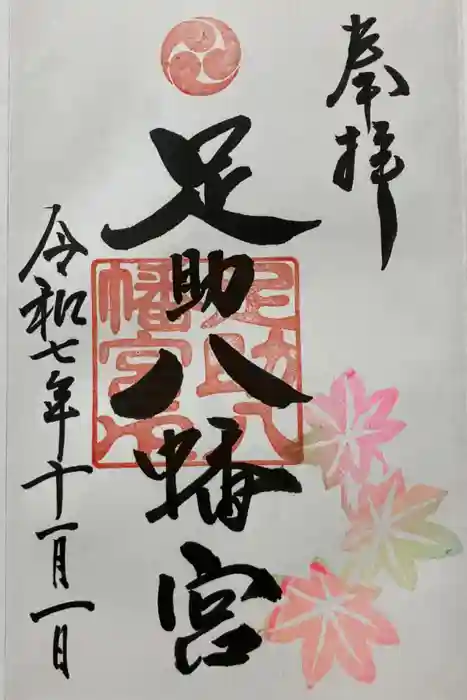 奉拝
足助八幡宮
足助八幡宮印
令和七年十一月一日